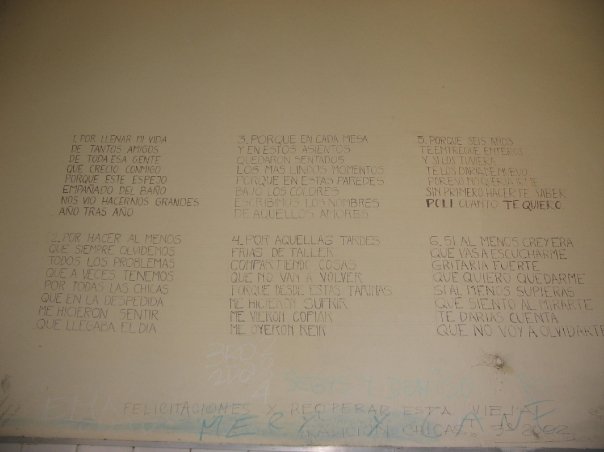 1. POR LLENAR MI VIDA
DE TANTOS AMIGOS
DE TODA ESA GENTE
QUE CRECIO CONMIGO
PORQUE ESTE ESPEJO
EMPAÑADO DEL BAÑO
NOS VIO HACERNOS GRANDES
AÑO TRAS AÑO
2. POR HACER AL MENOS
QUE SIEMPRE OLVIDEMOS
TODOS LOS PROBLEMAS
QUE A VECES TENEMOS
POR TODAS LAS CHICAS
QUE EN LA DESPEDIDA
ME HICIERON SENTIR
QUE LLEGABA EL DIA
3. PORQUE EN CADA MESA
Y EN ESTOS ASIENTOS
QUEDARON SENTADOS
LOS MAS LINDOS MOMENTOS
PORQUE EN ESTAS PAREDES
BAJO LOS COLORES
ESCRIBIMOS LOS NOMBRES
DE AQUELLOS AMORES
4. POR AQUELLAS TARDES
FRIAS DE TALLER
COMPARTIENDO COSAS
QUE NO VAN A VOLVER
PORQUE DESDE ESTAS TARIMAS
ME HICIERON SUFRIR
ME VIERON COPIAR
ME OYERON REIR
5. PORQUE SEIS AÑOS
TE ENTREGUE ENTEROS
Y SI LOS TUVIERA
TE LOS DARIA DE NUEVO
POR ESO NO QUIERO IRME
SIN PRIMERO HACERTE SABER
CUANTO TE QUIERO.
6. SI AL MENOS CREYERA
QUE VAS A ESCUCHARME
GRITARIA FUERTE
QUE QUIERO QUEDARME
SI AL MENOS SUPIERAS
QUE SIENTO AL MIRARTE
TE DARIAS CUENTA
QUE NO VOY A OLVIDARTE
3RO
2DO
FELICITACIONES Y RECUPERAR ESTA VIEJA
TRADICION CHICAS 2002
MERY